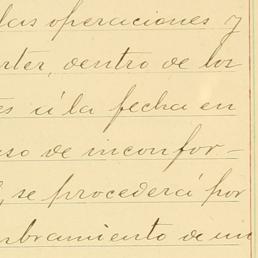 las operaciones y
rter, dentro de los
es á la fecha en
so de inconfor-
, se procederá por
mbramiento de un